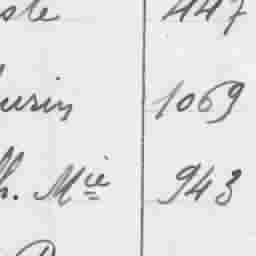 ste 447
urin 1069
h. Mie 943